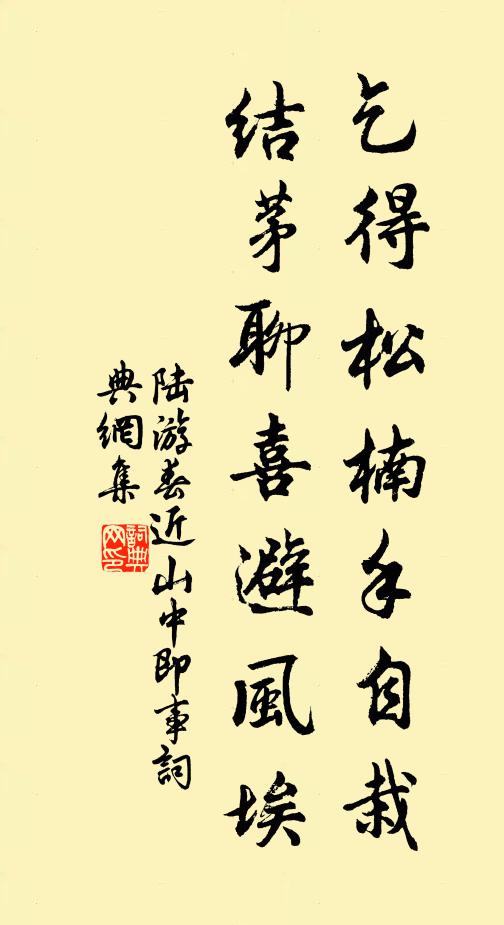 乞得松楠手自栽
结茅聊喜避風埃
陆游春近山中即事詞
典網集
詞典网印